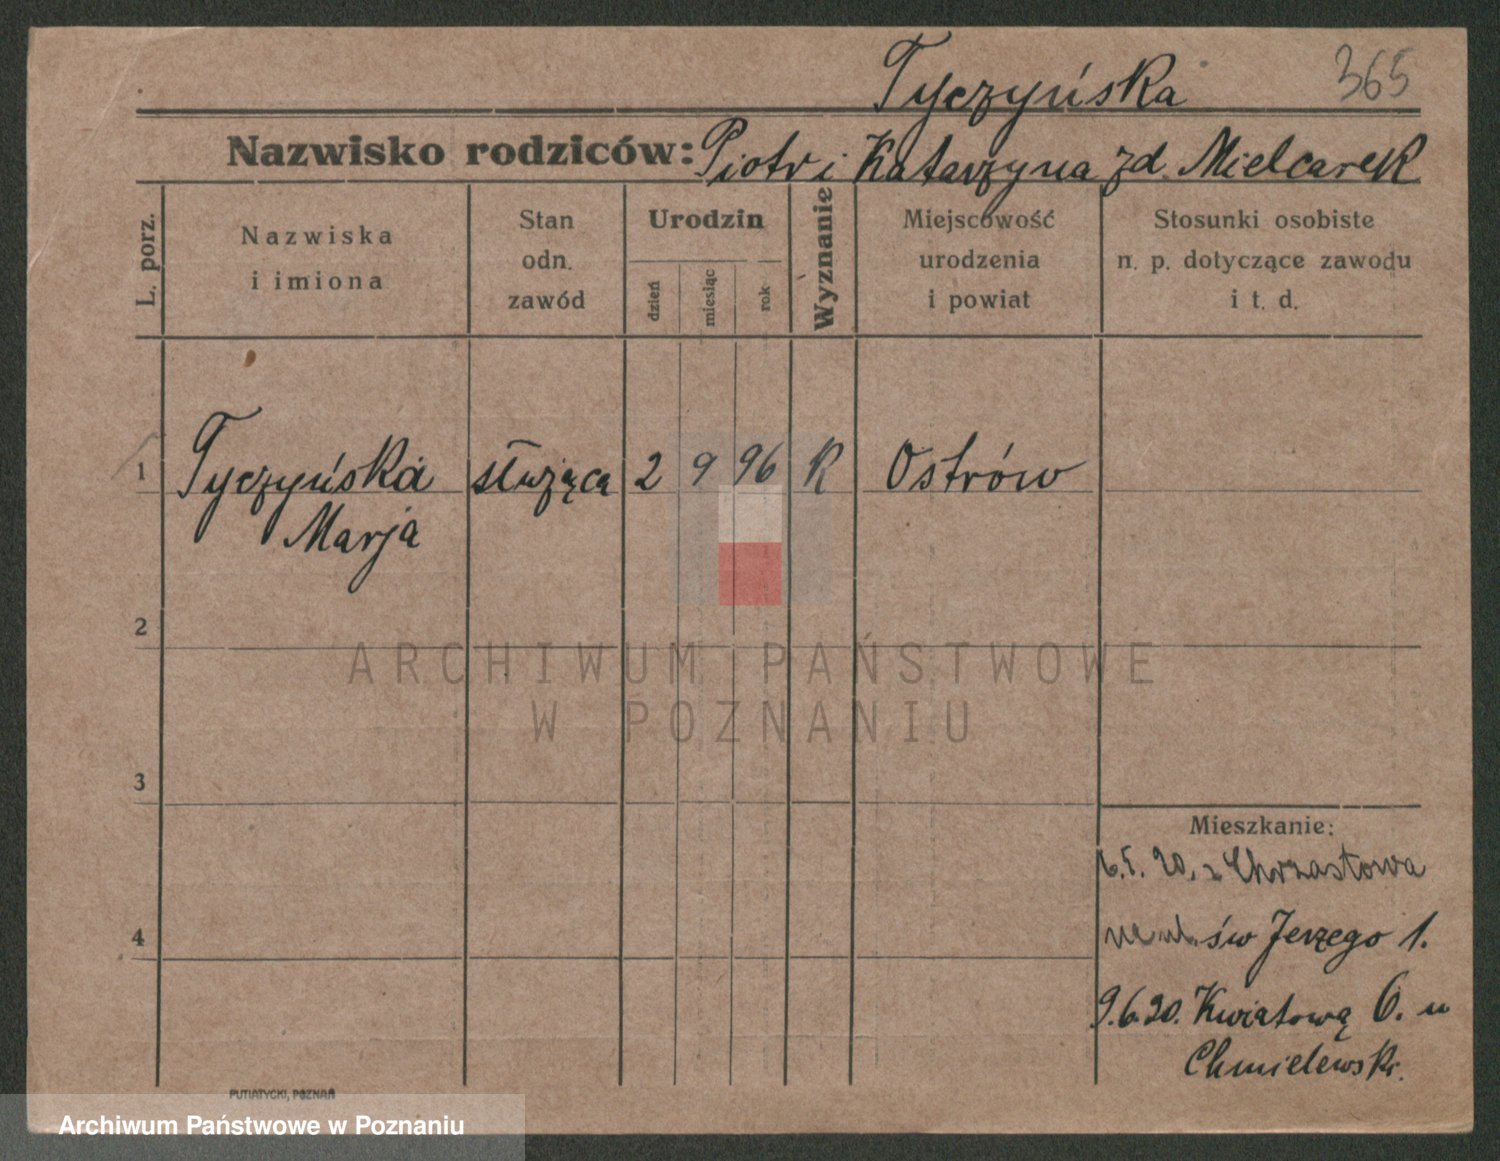 Tyczyńska 365
Nazwisko rodziców: Piotr i Katarzyna zd. Mielcarek
L. porz.
Nazwiska
i imiona
Stan
odn.
zawód
Urodzin
dzień
miesiąc
rok
Wyznanie
Miejscowość
urodzenia
i powiat
Stosunki osobiste
n. p. dotyczące zawodu
i t. d.
1 Tyczyńska służąca 2 9 96 K Ostrów
Marja
2
ARCHIWUM PAŃSTWOWE
W POZNANIU
3
Mieszkanie:
20. z Chrzastowa
4
św Jerzego 1.
9.6.20. Kwiatową 6. u
Chmielewski.
PUTIATYCKI, POZNAŃ
Archiwum Państwowe w Poznaniu